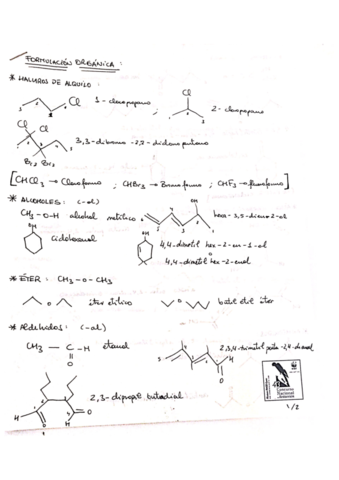 FORMULACIÓN ORGÁNICA :
* HALUROS DE ALQUILO :
Cl 1-cloropropano ; Cl 2-cloropropano
Cl Cl
3,3-dibromo-2,2-dicloropentano
Br Br
[CHCl3 → Cloroformo ; CHBr3 → Bromoformo ; CHF3 → fluoroformo]
* ALCOHOLES : (-ol)
CH3-O-H alcohol metílico ; OH hexa-3,5-dieno-2-ol
OH ciclohexanol
OH 4,4-dimetil hex-2-en-1-ol
4,4-dimetil hex-2-enol
* ÉTER : CH3-O-CH3
O éter etílico O butil etil éter
* Aldehidos : (-al)
CH3 - C - H etanal
O
H O
2,3,4-trimetil penta-2,4-dienal
2,3-dipropil butadial
H O O
1/2